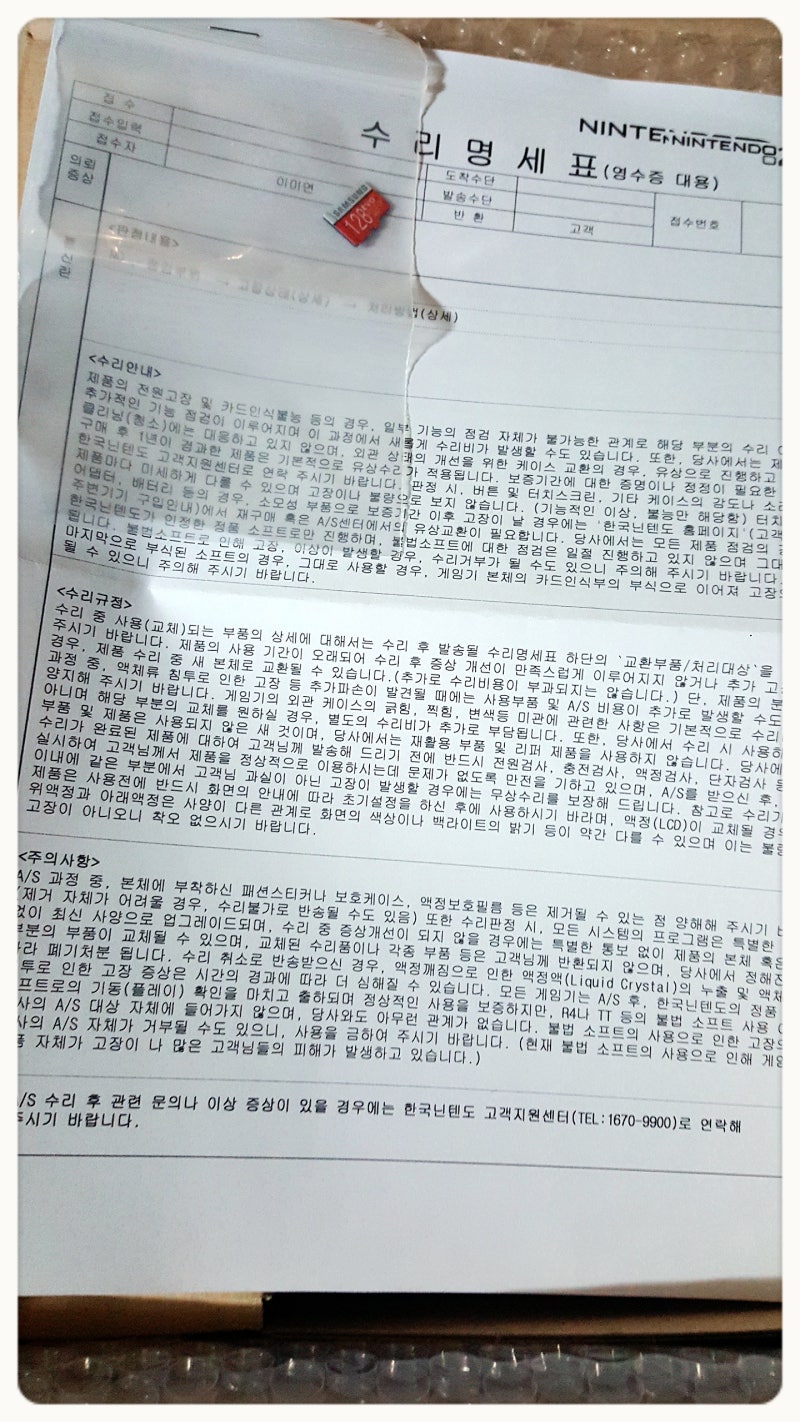 NINTENDO
수리명세표(영수증 대용)
접수
접수입력
접수자
이미연
도착수단
발송수단
반환
고객
접수번호
의뢰
증상
SAMSUNG
128
<판정내용>
→ 고장상태(상세) → 처리방법(상세)
<수리안내>
제품의 전원고장 및 카드인식불능 등의 경우, 일부 기능의 점검 자체가 불가능한 관계로 해당 부분의 수리
추가적인 기능 점검이 이루어지며 이 과정에서 새롭게 수리비가 발생할 수도 있습니다. 또한, 당사에서는 제
클리닝(청소)에는 대응하고 있지 않으며, 외관 상태의 개선을 위한 케이스 교환의 경우, 유상으로 진행하고
구매 후 1년이 경과한 제품은 기본적으로 유상수리가 적용됩니다. 보증기간에 대한 증명이나 정정이 필요한
한국닌텐도 고객지원센터로 연락 주시기 바랍니다. 판정 시, 버튼 및 터치스크린, 기타 케이스의 감도나 소리
제품마다 미세하게 다를 수 있으며 고장이나 불량으로 보지 않습니다. (기능적인 이상, 불능만 해당함) 터치
어댑터, 배터리 등의 경우, 소모성 부품으로 보증기간 이후 고장이 날 경우에는 '한국닌텐도 홈페이지'(고객
주변기기 구입안내)에서 재구매 혹은 A/S센터에서의 유상교환이 필요합니다. 당사에서는 모든 제품 점검의 경
한국닌텐도가 인정한 정품 소프트로만 진행하며, 불법소프트에 대한 점검은 일절 진행하고 있지 않으며 그대
됩니다. 불법소프트로 인해 고장, 이상이 발생할 경우, 수리거부가 될 수도 있으니 주의해 주시기 바랍니다.
마지막으로 부식된 소프트의 경우, 그대로 사용할 경우, 게임기 본체의 카드인식부의 부식으로 이어져 고장의
될 수 있으니 주의해 주시기 바랍니다.
<수리규정>
수리 중 사용(교체)되는 부품의 상세에 대해서는 수리 후 발송될 수리명세표 하단의 '교환부품/처리대상'을
주시기 바랍니다. 제품의 사용 기간이 오래되어 수리 후 증상 개선이 만족스럽게 이루어지지 않거나 추가 고
경우, 제품 수리 중 새 본체로 교환될 수 있습니다.(추가로 수리비용이 부과되지는 않습니다.) 단, 제품의 분
과정 중, 액체류 침투로 인한 고장 등 추가파손이 발견될 때에는 사용부품 및 A/S 비용이 추가로 발생할 수도
양지해 주시기 바랍니다. 게임기의 외관 케이스의 긁힘, 찍힘, 변색등 미관에 관련한 사항은 기본적으로 수리
아니며 해당 부분의 교체를 원하실 경우, 별도의 수리비가 추가로 부담됩니다. 또한, 당사에서 수리 시 사용하
부품 및 제품은 사용되지 않은 새 것이며, 당사에서는 재활용 부품 및 리퍼 제품을 사용하지 않습니다. 당사에
수리가 완료된 제품에 대하여 고객님께 발송해 드리기 전에 반드시 전원검사, 충전검사, 액정검사, 단자검사 등
실시하여 고객님께서 제품을 정상적으로 이용하시는데 문제가 없도록 만전을 기하고 있으며, A/S를 받으신 후,
이내에 같은 부분에서 고객님 과실이 아닌 고장이 발생할 경우에는 무상수리를 보장해 드립니다. 참고로 수리기
제품은 사용전에 반드시 화면의 안내에 따라 초기설정을 하신 후에 사용하시기 바라며, 액정(LCD)이 교체될 경우
위액정과 아래액정은 사양이 다른 관계로 화면의 색상이나 백라이트의 밝기 등이 약간 다를 수 있으며 이는 불량
고장이 아니오니 착오 없으시기 바랍니다.
<주의사항>
A/S 과정 중, 본체에 부착하신 패션스티커나 보호케이스, 액정보호필름 등은 제거될 수 있는 점 양해해 주시기
(제거 자체가 어려울 경우, 수리불가로 반송될 수도 있음) 또한 수리판정 시, 모든 시스템의 프로그램은 특별한
없이 최신 사양으로 업그레이드되며, 수리 중 증상개선이 되지 않을 경우에는 특별한 통보 없이 제품의 본체 혹은
부분의 부품이 교체될 수 있으며, 교체된 수리품이나 각종 부품 등은 고객님께 반환되지 않으며, 당사에서 정해진
라 폐기처분 됩니다. 수리 취소로 반송받으신 경우, 액정깨짐으로 인한 액정액(Liquid Crystal)의 누출 및 액체
투로 인한 고장 증상은 시간의 경과에 따라 더 심해질 수 있습니다. 모든 게임기는 A/S 후, 한국닌텐도의 정품
프트로의 기동(플레이) 확인을 마치고 출하되며 정상적인 사용을 보증하지만, R4나 TT 등의 불법 소프트 사용
사의 A/S 대상 자체에 들어가지 않으며, 당사와도 아무런 관계가 없습니다. 불법 소프트의 사용으로 인한 고장의
사의 A/S 자체가 거부될 수도 있으니, 사용을 금하여 주시기 바랍니다. (현재 불법 소프트의 사용으로 인해 게임
품 자체가 고장이 나 많은 고객님들의 피해가 발생하고 있습니다.)
A/S 수리 후 관련 문의나 이상 증상이 있을 경우에는 한국닌텐도 고객지원센터(TEL:1670-9900)로 연락해
주시기 바랍니다.